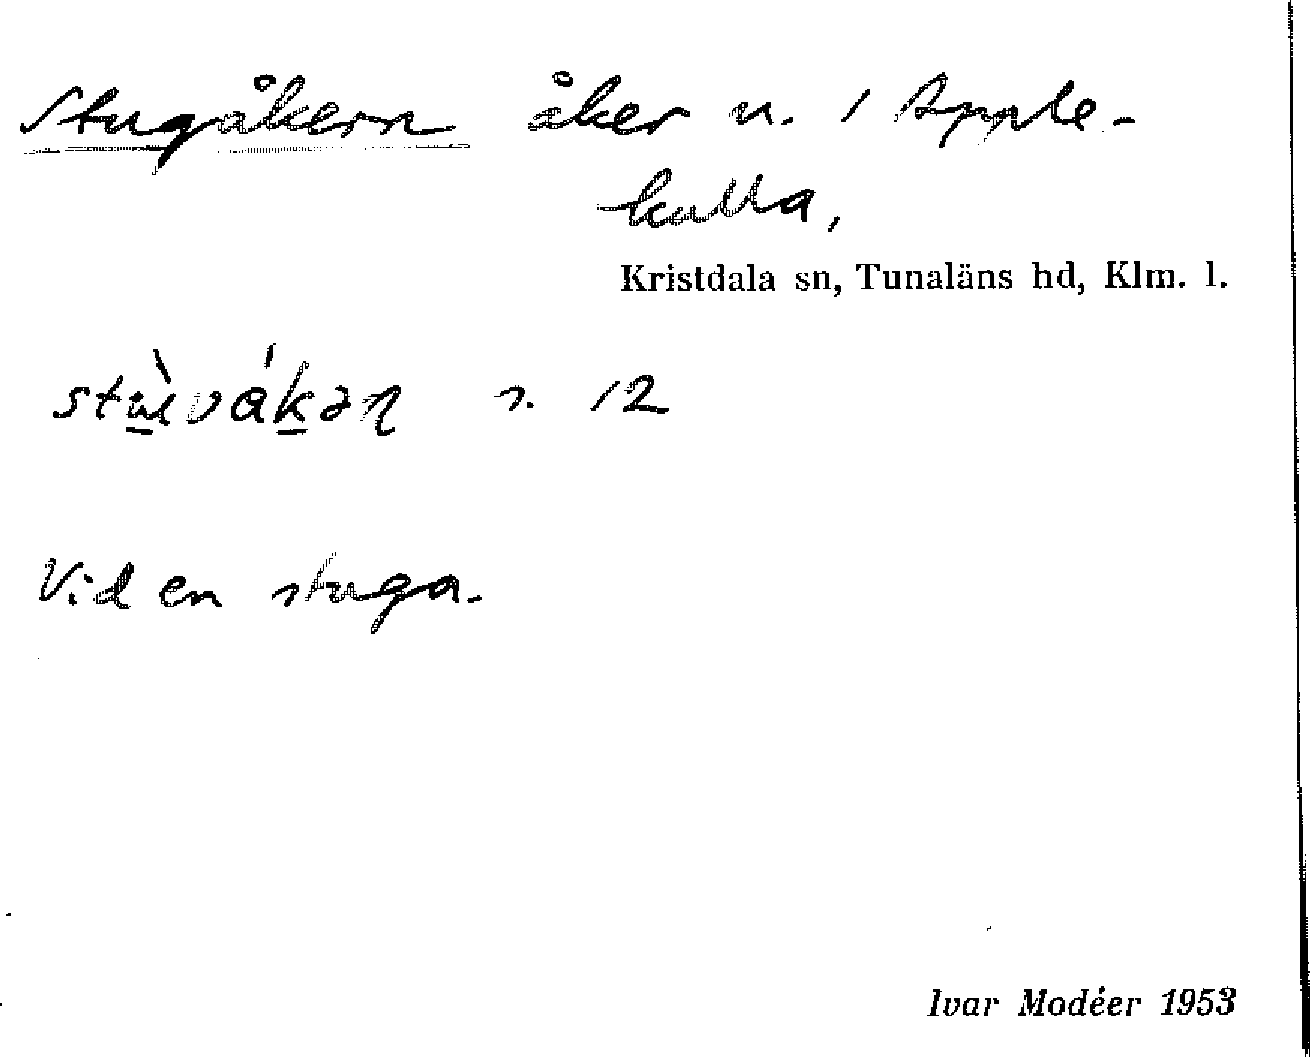 Stugåkern åker n. 1 Apple-
kulla,
Kristdala sn, Tunaläns hd, Klm. l.
12
Vid en stuga.
Ivar Modéer 1953